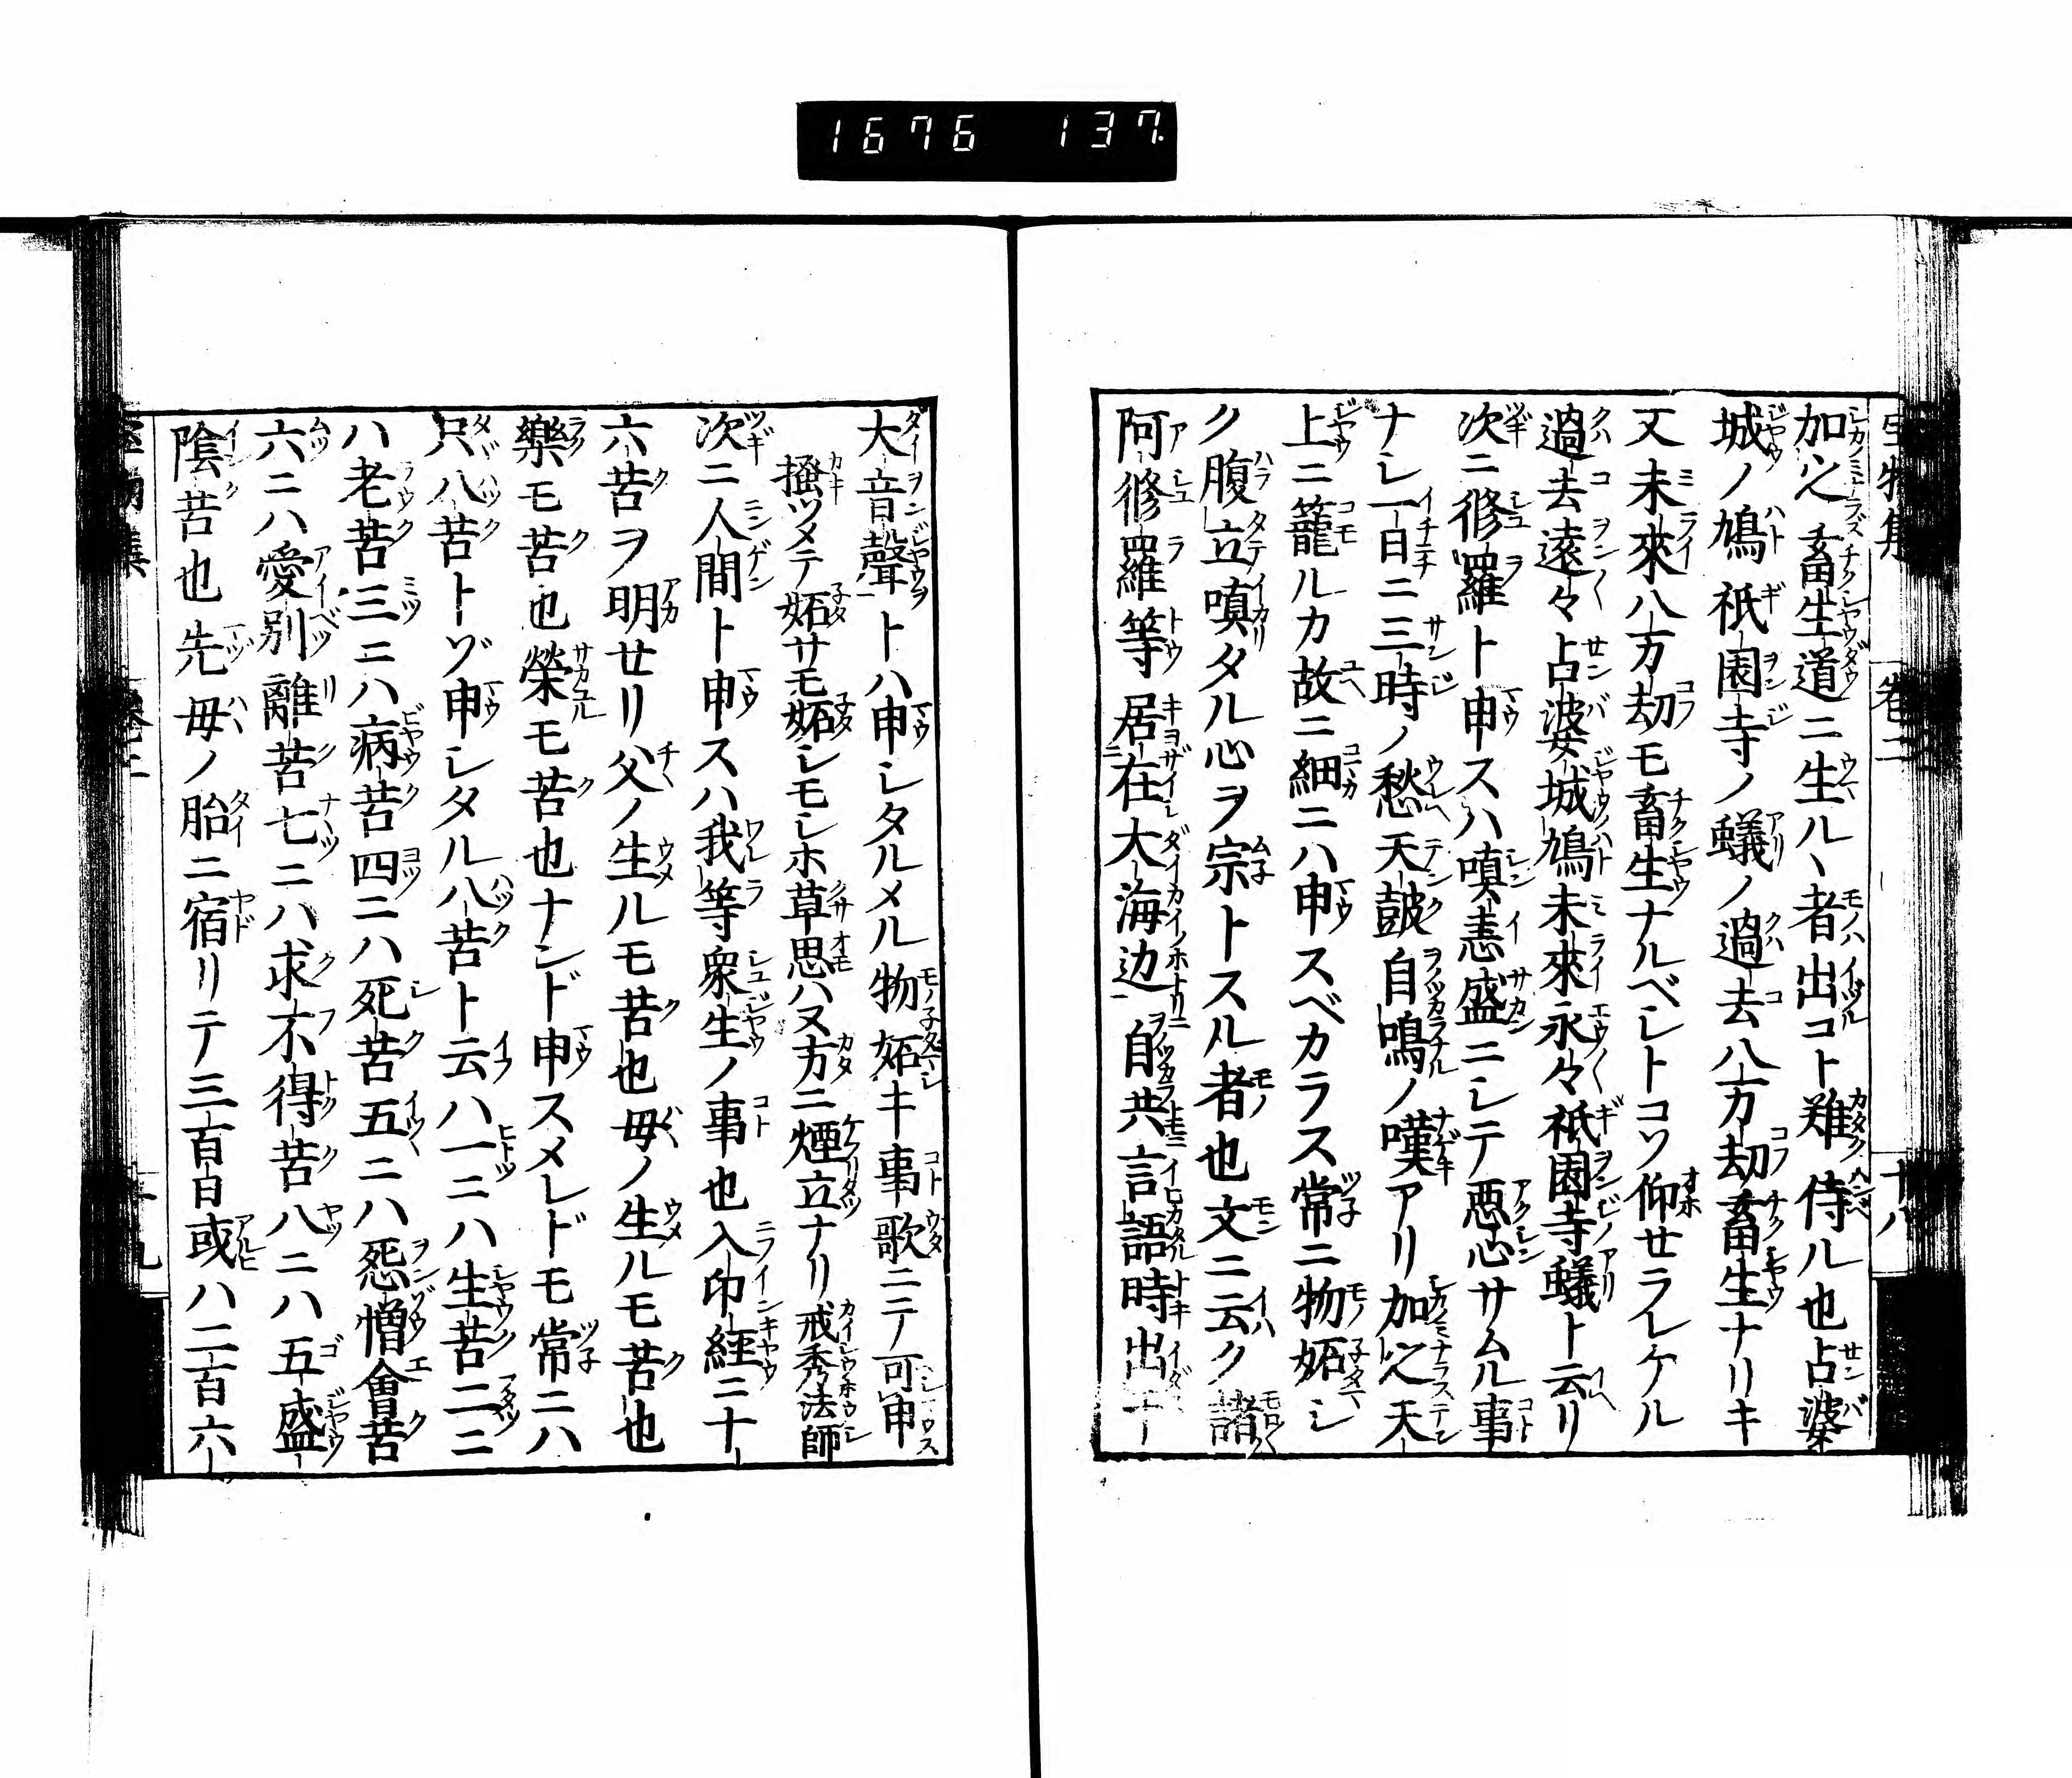 1676 137
加之畜生道ニ生ル丶者出コト難ク侍ル也占婆
城ノ鳩祇園寺ノ蟻ノ過去八万劫畜生ナリキ
又未來八万劫モ畜生ナルベシトコソ仰セラレケル
過去遠々占婆城鳩未來永々祇園寺蟻ト云リ
次ニ修羅ト申スハ嗔恚盛ニシテ惡心サムル事
ナシ一日ニ三時ノ愁天皷自鳴ノ嘆アリ加之天
上ニ籠ルカ故ニ細ニハ申スベカラス常ニ物妬シ
ク腹立嗔タル心ヲ宗トスル者也文ニ云ク諸
阿修羅等居在大海边自共言語時出于
大音聲トハ申シタルメル物妬キ事歌ニテ可申
搔ツメテ妬サモ妬シモシホ草思ハヌ方ニ煙立ナリ 戒秀法師
次ニ人間ト申スハ我等衆生ノ事也入印經ニ十
六苦ヲ明セリ父ノ生ルモ苦也母ノ生ルモ苦也
樂モ苦也榮モ苦也ナンド申スメレドモ常ニハ
只八苦トゾ申シタル八苦ト云ハ一ニハ生苦二ニ
ハ老苦三ニハ病苦四ニハ死苦五ニハ怨憎會苦
六ニハ愛別離苦七ニハ求不得苦八ニハ五盛
陰苦也先母ノ胎ニ宿リテ三百日或ハ二百六